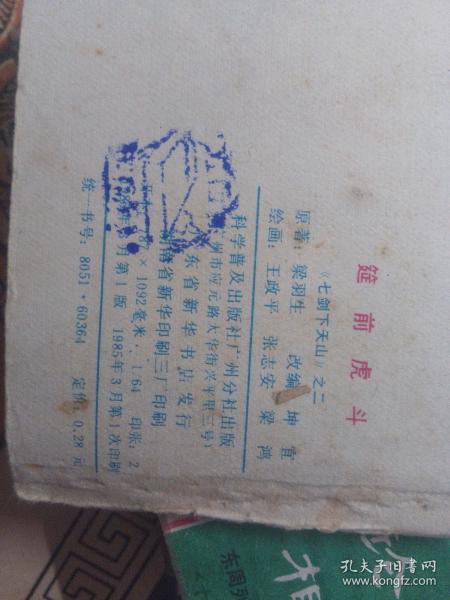 筵前虎斗
《七剑下天山》之二
原著：梁羽生 改编：坤宜
绘画：王政平 张志安 梁鸿
科学普及出版社广州分社出版
州市应元路大华街兴平里三号)
东省新华书店发行
省新华印刷三厂印刷
1092毫米 1/64 印张：2
月第1版 1985年3月第1次印刷
统一书号：8051·60364 定价：0.28元
东周列
孔夫子旧书网
www.kongfz.com